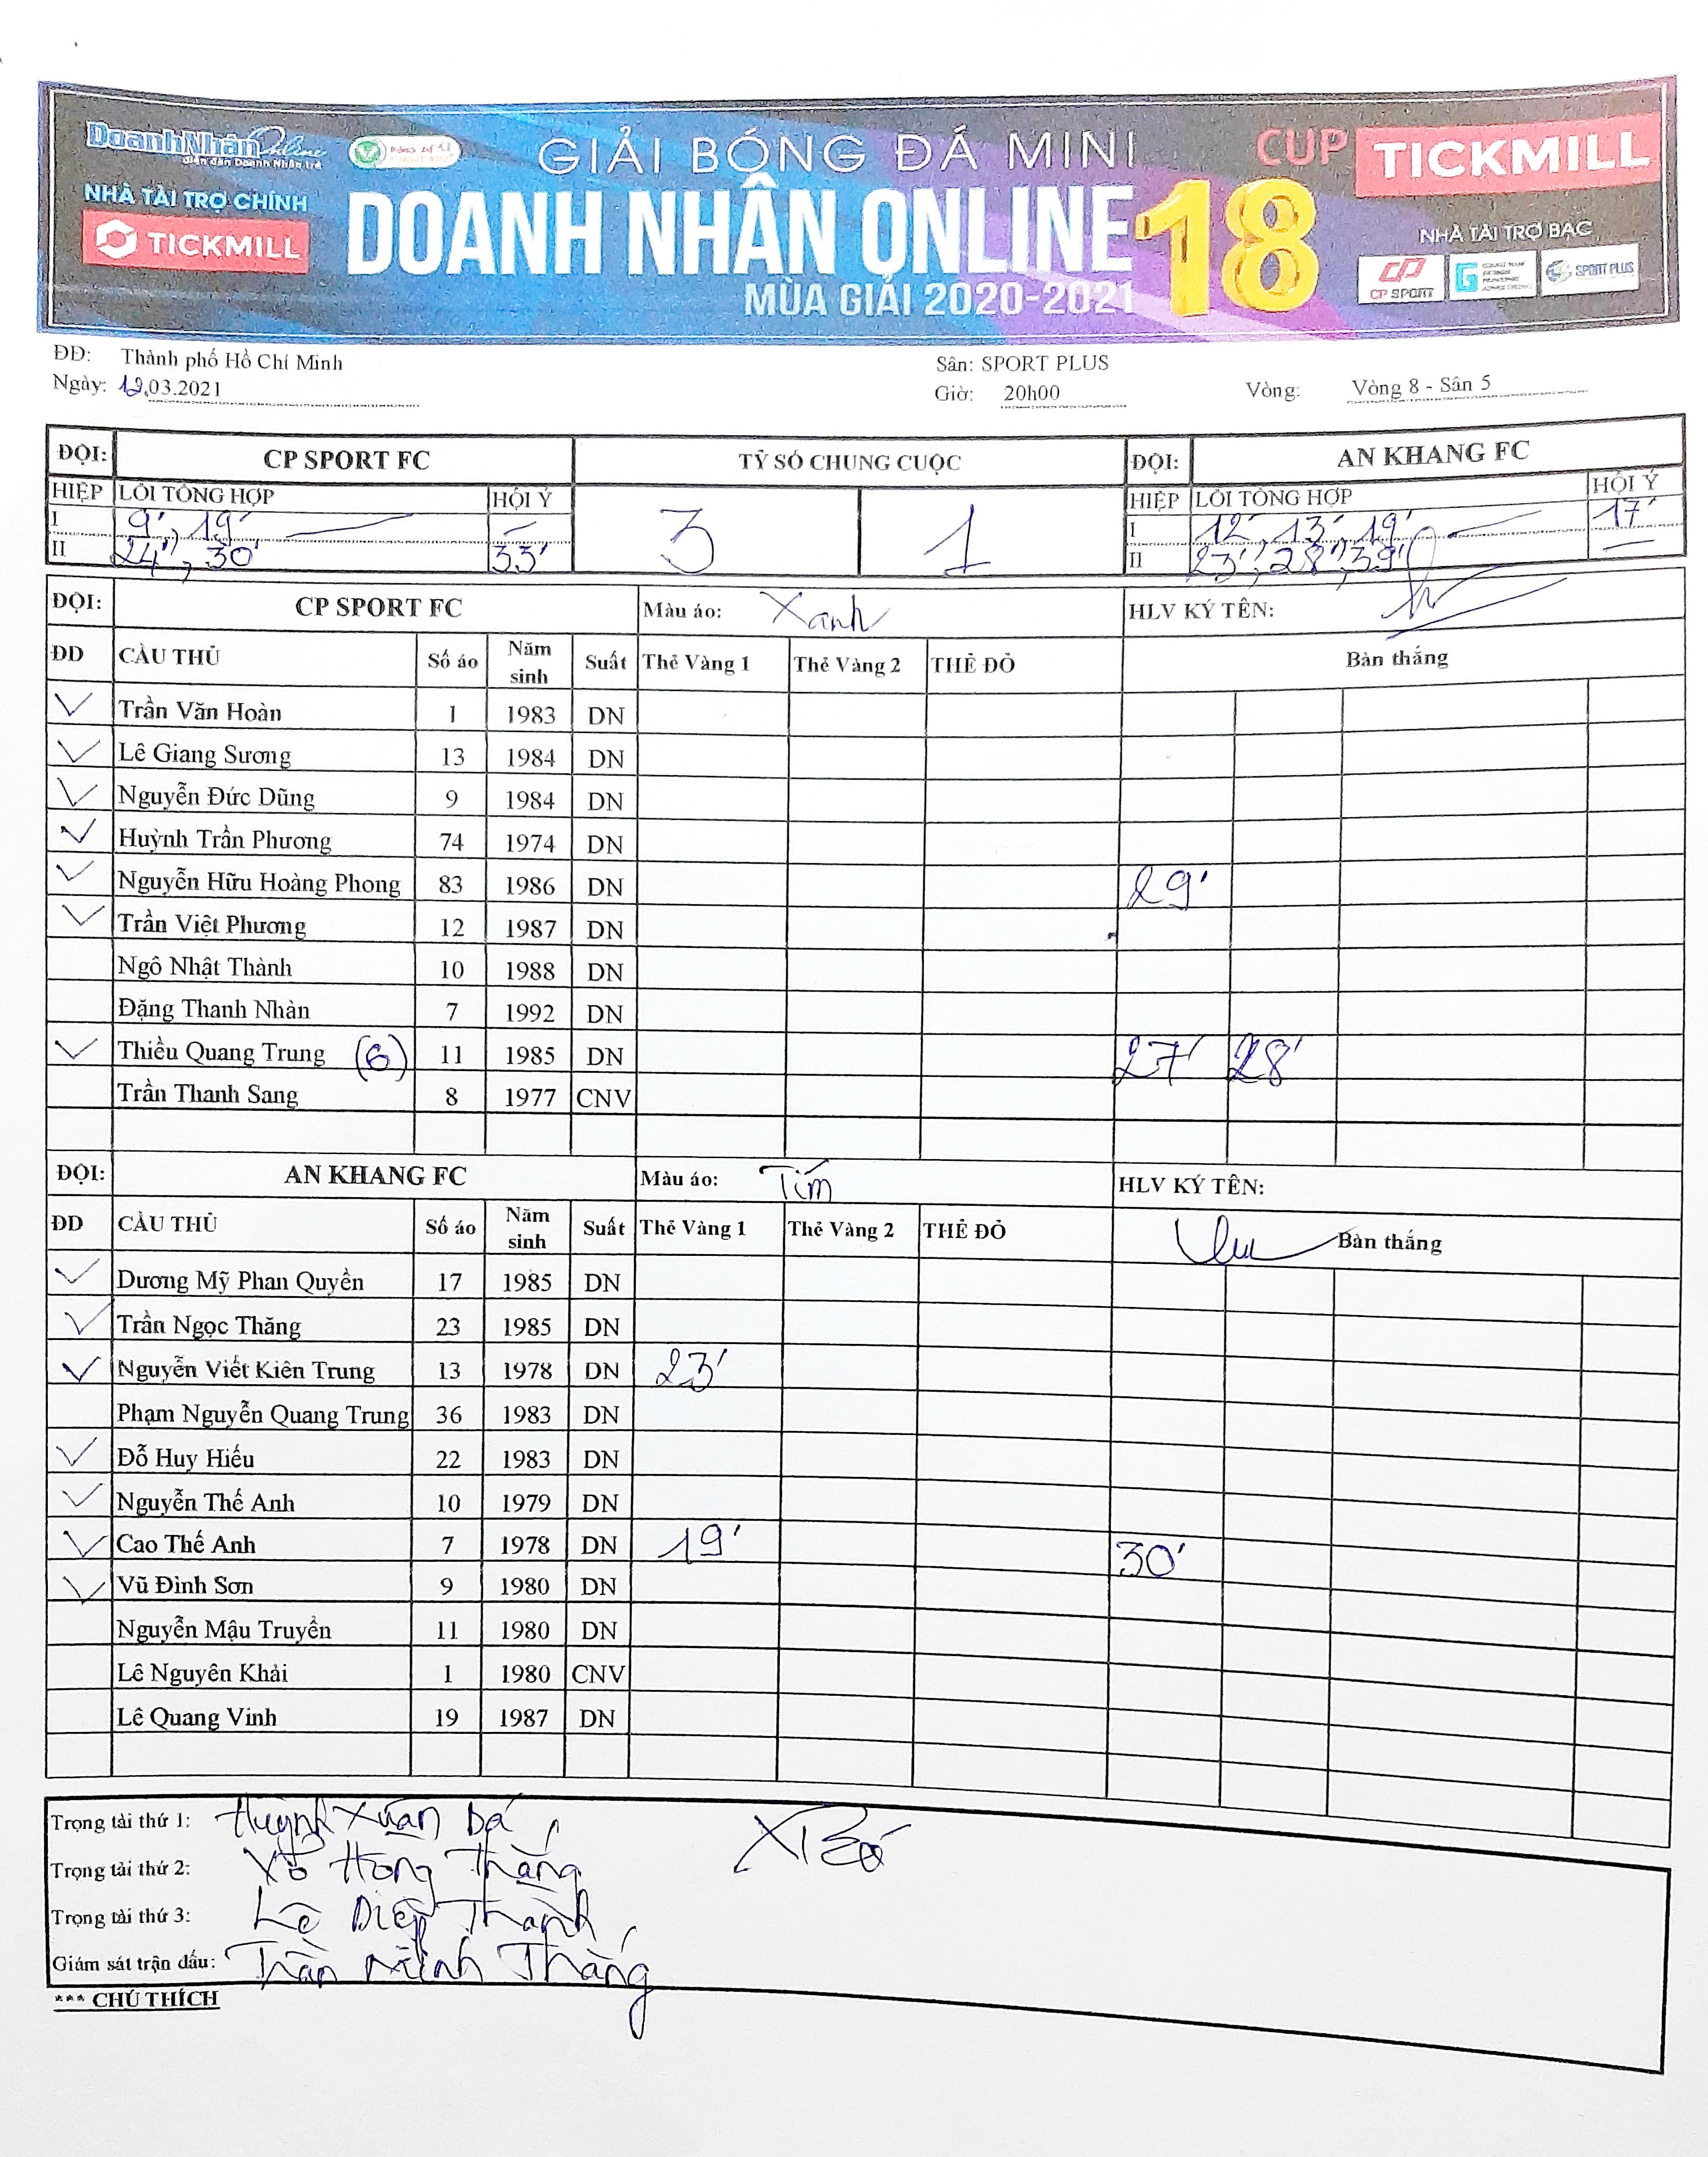 DoanhNhân Online
diễn đàn Doanh Nhân trẻ
NHÀ TÀI TRỢ CHÍNH
TICKMILL
GIẢI BÓNG ĐÁ MINI
DOANH NHÂN ONLINE 18
MÙA GIẢI 2020-2021
CUP TICKMILL
NHÀ TÀI TRỢ BẠC
CP SPORT SPORT PLUS
ĐĐ: Thành phố Hồ Chí Minh Sân: SPORT PLUS
Ngày: 12.03.2021 Giờ: 20h00 Vòng: Vòng 8 - Sân 5
ĐỘI: CP SPORT FC TỶ SỐ CHUNG CUỘC ĐỘI: AN KHANG FC
HIỆP LỖI TỔNG HỢP HỘI Ý 3 1 HIỆP LỖI TỔNG HỢP HỘI Ý
I 9', 19' – I 12', 13', 19' 17'
II 24', 30' 33' II 23', 28', 39' –
ĐỘI: CP SPORT FC Màu áo: Xanh HLV KÝ TÊN:
ĐD CẦU THỦ Số áo Năm sinh Suất Thẻ Vàng 1 Thẻ Vàng 2 THẺ ĐỎ Bàn thắng
✓ Trần Văn Hoàn 1 1983 DN
✓ Lê Giang Sương 13 1984 DN
✓ Nguyễn Đức Dũng 9 1984 DN
✓ Huỳnh Trần Phương 74 1974 DN
✓ Nguyễn Hữu Hoàng Phong 83 1986 DN 29'
✓ Trần Việt Phương 12 1987 DN
Ngô Nhật Thành 10 1988 DN
Đặng Thanh Nhàn 7 1992 DN
✓ Thiều Quang Trung (6) 11 1985 DN 27' 28'
Trần Thanh Sang 8 1977 CNV
ĐỘI: AN KHANG FC Màu áo: Tím HLV KÝ TÊN:
ĐD CẦU THỦ Số áo Năm sinh Suất Thẻ Vàng 1 Thẻ Vàng 2 THẺ ĐỎ Bàn thắng
✓ Dương Mỹ Phan Quyền 17 1985 DN
✓ Trần Ngọc Thăng 23 1985 DN
✓ Nguyễn Viết Kiên Trung 13 1978 DN 23'
Phạm Nguyễn Quang Trung 36 1983 DN
✓ Đỗ Huy Hiếu 22 1983 DN
✓ Nguyễn Thế Anh 10 1979 DN
✓ Cao Thế Anh 7 1978 DN 19' 30'
✓ Vũ Đình Sơn 9 1980 DN
Nguyễn Mậu Truyền 11 1980 DN
Lê Nguyên Khải 1 1980 CNV
Lê Quang Vinh 19 1987 DN
Trọng tài thứ 1: Huỳnh Xuân Bá
Trọng tài thứ 2: Võ Hồng Thắng
Trọng tài thứ 3: Lê Diệp Thành
Giám sát trận đấu: Trần Minh Thắng
*** CHÚ THÍCH